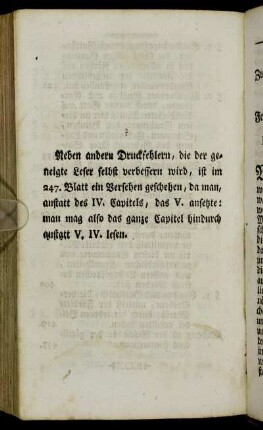 Neben andern Druckfehlern, die der ge-
neigte Leser selbst verbessern wird, ist im
247. Blatt ein Versehen geschehen, da man,
anstatt des IV. Capitels, das V. ansetzte:
man mag also das ganze Capitel hindurch
anstatt V, IV. lesen.